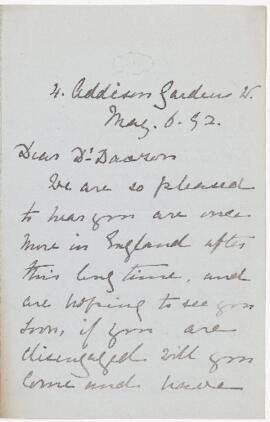 4. Addison Gardens W.
May. 6. 92.
Dear Dr. Dawson
We are so pleased
to hear you are once
more in England after
this long time, and
are hoping to see you
soon, if you are
disengaged will you
come and have